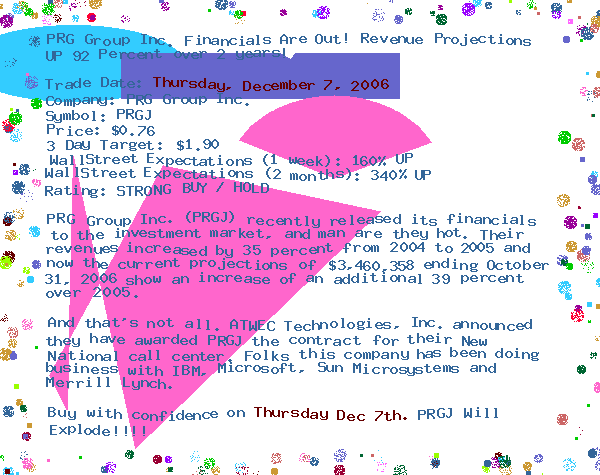 PRG Group Inc. Financials Are Out! Revenue Projections
UP 92 Percent over 2 years!
Trade Date: Thursday, December 7, 2006
Company: PRG Group Inc.
Symbol: PRGJ
Price: $0.76
3 Day Target: $1.90
WallStreet Expectations (1 week): 160% UP
WallStreet Expectations (2 months): 340% UP
Rating: STRONG BUY / HOLD
PRG Group Inc. (PRGJ) recently released its financials
to the investment market, and man are they hot. Their
revenues increased by 35 percent from 2004 to 2005 and
now the current projections of $3,460,358 ending October
31, 2006 show an increase of an additional 39 percent
over 2005.
And that's not all. ATWEC Technologies, Inc. announced
they have awarded PRGJ the contract for their New
National call center. Folks this company has been doing
business with IBM, Microsoft, Sun Microsystems and
Merrill Lynch.
Buy with confidence on Thursday Dec 7th. PRGJ Will
Explode!!!!